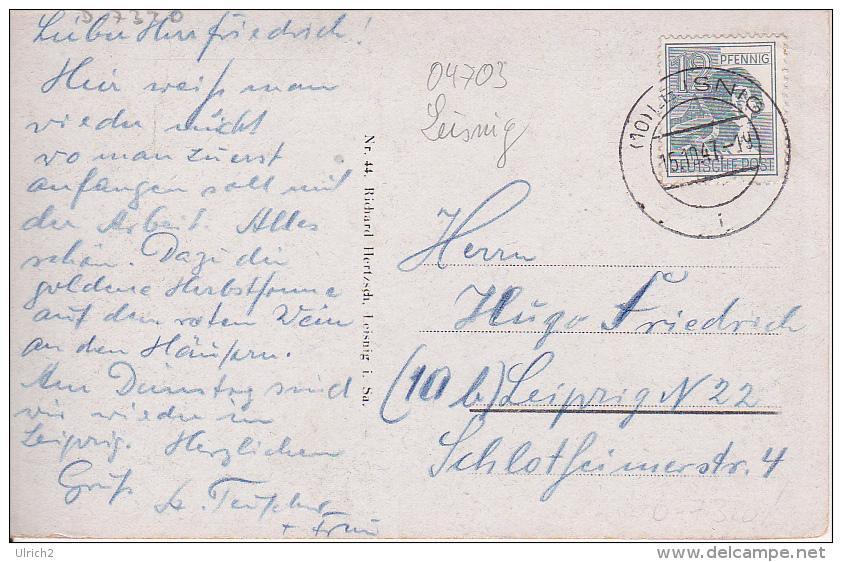 D 17370
Lieber Herr Friedrich!
Hier weiß man
wieder nicht
wo man zuerst
anfangen soll mit
der Arbeit. Alles
schön. Dazu die
goldene Herbstsonne
auf dem roten Wein
an den Häusern.
Am Dienstag sind
wir wieder in
Leipzig. Herzlichen
Gruß
+ Frau
Nr. 44. Richard Hertzsch, Leisnig i. Sa.
04703
Leisnig
12 PFENNIG
DEUTSCHE POST
(10) LEISNIG
15.10.47.-19
i
Herrn
Hugo Friedrich
(10 b) Leipzig N 22
Schlotheimerstr. 4
Ulrich2
www.delcampe.net